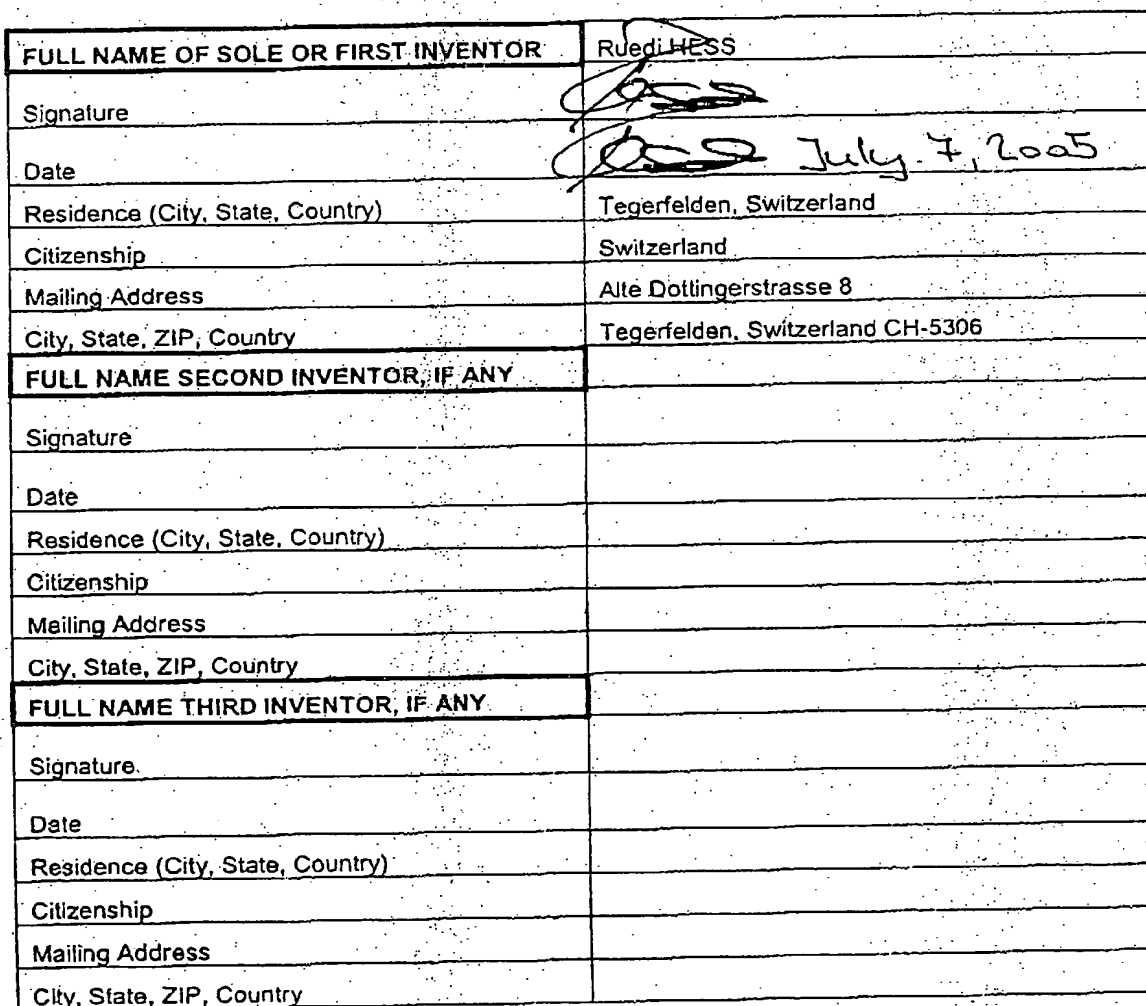 FULL NAME OF SOLE OR FIRST INVENTOR Ruedi HESS
Signature
Date July 7, 2005
Residence (City, State, Country) Tegerfelden, Switzerland
Citizenship Switzerland
Mailing Address Alte Dottingerstrasse 8
City, State, ZIP, Country Tegerfelden, Switzerland CH-5306
FULL NAME SECOND INVENTOR, IF ANY
Signature
Date
Residence (City, State, Country)
Citizenship
Mailing Address
City, State, ZIP, Country
FULL NAME THIRD INVENTOR, IF ANY
Signature
Date
Residence (City, State, Country)
Citizenship
Mailing Address
City, State, ZIP, Country